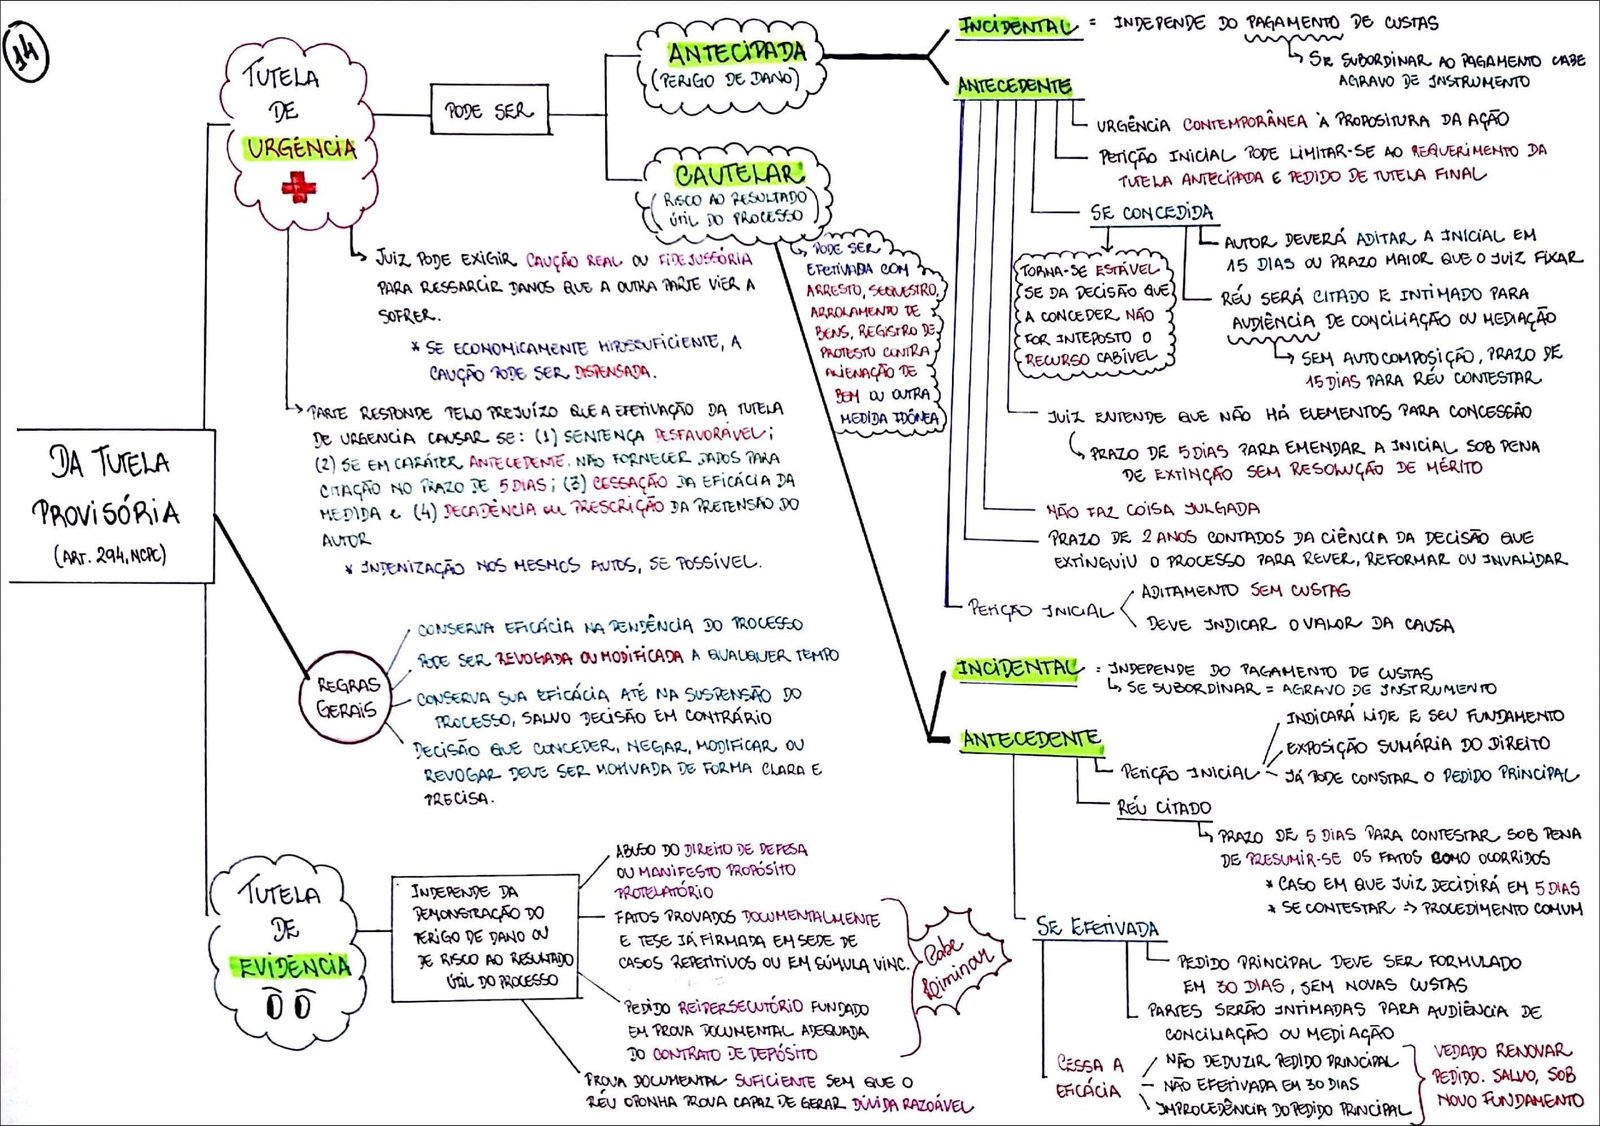 14
DA TUTELA
PROVISÓRIA
(ART. 294, NCPC)
TUTELA
DE
URGÊNCIA
PODE SER
ANTECIPADA
(PERIGO DE DANO)
CAUTELAR
(RISCO AO RESULTADO
ÚTIL DO PROCESSO)
JUIZ PODE EXIGIR CAUÇÃO REAL OU FIDEJUSSÓRIA
PARA RESSARCIR DANOS QUE A OUTRA PARTE VIER A
SOFRER.
* SE ECONOMICAMENTE HIPOSSUFICIENTE, A
CAUÇÃO PODE SER DISPENSADA.
PARTE RESPONDE PELO PREJUÍZO QUE A EFETIVAÇÃO DA TUTELA
DE URGENCIA CAUSAR SE: (1) SENTENÇA DESFAVORÁVEL;
(2) SE EM CARÁTER ANTECEDENTE, NÃO FORNECER DADOS PARA
CITAÇÃO NO PRAZO DE 5 DIAS; (3) CESSAÇÃO DA EFICÁCIA DA
MEDIDA e (4) DECADÊNCIA ou PRESCRIÇÃO DA PRETENSÃO DO
AUTOR
* INDENIZAÇÃO NOS MESMOS AUTOS, SE POSSÍVEL.
PODE SER
EFETIVADA COM
ARRESTO, SEQUESTRO,
ARROLAMENTO DE
BENS, REGISTRO DE
PROTESTO CONTRA
ALIENAÇÃO DE
BEM OU OUTRA
MEDIDA IDÔNEA
INCIDENTAL = INDEPENDE DO PAGAMENTO DE CUSTAS
SE SUBORDINAR AO PAGAMENTO CABE
AGRAVO DE INSTRUMENTO
ANTECEDENTE
URGÊNCIA CONTEMPORÂNEA À PROPOSITURA DA AÇÃO
PETIÇÃO INICIAL PODE LIMITAR-SE AO REQUERIMENTO DA
TUTELA ANTECIPADA E PEDIDO DE TUTELA FINAL
SE CONCEDIDA
AUTOR DEVERÁ ADITAR A INICIAL EM
15 DIAS OU PRAZO MAIOR QUE O JUIZ FIXAR
TORNA-SE ESTÁVEL
SE DA DECISÃO QUE
A CONCEDER NÃO
FOR INTEPOSTO O
RECURSO CABÍVEL
RÉU SERÁ CITADO E INTIMADO PARA
AUDIÊNCIA DE CONCILIAÇÃO OU MEDIAÇÃO
SEM AUTOCOMPOSIÇÃO, PRAZO DE
15 DIAS PARA RÉU CONTESTAR
JUIZ ENTENDE QUE NÃO HÁ ELEMENTOS PARA CONCESSÃO
PRAZO DE 5 DIAS PARA EMENDAR A INICIAL SOB PENA
DE EXTINÇÃO SEM RESOLUÇÃO DE MÉRITO
NÃO FAZ COISA JULGADA
PRAZO DE 2 ANOS CONTADOS DA CIÊNCIA DA DECISÃO QUE
EXTINGUIU O PROCESSO PARA REVER, REFORMAR OU INVALIDAR
PETIÇÃO INICIAL
ADITAMENTO SEM CUSTAS
DEVE INDICAR O VALOR DA CAUSA
INCIDENTAL = INDEPENDE DO PAGAMENTO DE CUSTAS
SE SUBORDINAR = AGRAVO DE INSTRUMENTO
ANTECEDENTE
PETIÇÃO INICIAL
INDICARÁ LIDE E SEU FUNDAMENTO
EXPOSIÇÃO SUMÁRIA DO DIREITO
JÁ PODE CONSTAR O PEDIDO PRINCIPAL
RÉU CITADO
PRAZO DE 5 DIAS PARA CONTESTAR SOB PENA
DE PRESUMIR-SE OS FATOS COMO OCORRIDOS
* CASO EM QUE JUIZ DECIDIRÁ EM 5 DIAS
* SE CONTESTAR => PROCEDIMENTO COMUM
SE EFETIVADA
PEDIDO PRINCIPAL DEVE SER FORMULADO
EM 30 DIAS, SEM NOVAS CUSTAS
PARTES SERÃO INTIMADAS PARA AUDIÊNCIA DE
CONCILIAÇÃO OU MEDIAÇÃO
CESSA A
EFICÁCIA
NÃO DEDUZIR PEDIDO PRINCIPAL
NÃO EFETIVADA EM 30 DIAS
IMPROCEDÊNCIA DO PEDIDO PRINCIPAL
VEDADO RENOVAR
PEDIDO. SALVO, SOB
NOVO FUNDAMENTO
REGRAS
GERAIS
CONSERVA EFICÁCIA NA PENDÊNCIA DO PROCESSO
PODE SER REVOGADA OU MODIFICADA A QUALQUER TEMPO
CONSERVA SUA EFICÁCIA ATÉ NA SUSPENSÃO DO
PROCESSO, SALVO DECISÃO EM CONTRÁRIO
DECISÃO QUE CONCEDER, NEGAR, MODIFICAR OU
REVOGAR DEVE SER MOTIVADA DE FORMA CLARA E
PRECISA.
TUTELA
DE
EVIDÊNCIA
INDEPENDE DA
DEMONSTRAÇÃO DO
PERIGO DE DANO OU
DE RISCO AO RESULTADO
ÚTIL DO PROCESSO
ABUSO DO DIREITO DE DEFESA
OU MANIFESTO PROPÓSITO
PROTELATÓRIO
FATOS PROVADOS DOCUMENTALMENTE
E TESE JÁ FIRMADA EM SEDE DE
CASOS REPETITIVOS OU EM SÚMULA VINC.
PEDIDO REIPERSECUTÓRIO FUNDADO
EM PROVA DOCUMENTAL ADEQUADA
DO CONTRATO DE DEPÓSITO
Cabe
Liminar
PROVA DOCUMENTAL SUFICIENTE SEM QUE O
RÉU OPONHA PROVA CAPAZ DE GERAR DÚVIDA RAZOÁVEL